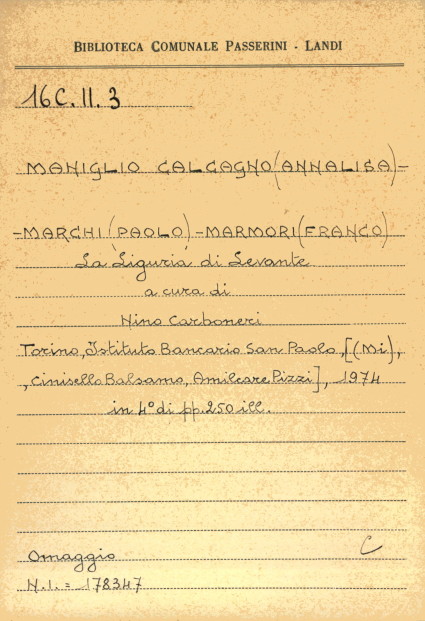 BIBLIOTECA COMUNALE PASSERINI - LANDI
16C.II.3
MANIGLIO CALCAGNO (ANNALISA)-
-MARCHI (PAOLO)-MARMORI (FRANCO)
La Liguria di Levante
a cura di
Nino Carboneri
Torino, Istituto Bancario San Paolo, [(Mi),
, Cinisello Balsamo, Amilcare Pizzi], 1974
in 4° di pp. 250 ill.
Omaggio C
N.I. = 178347